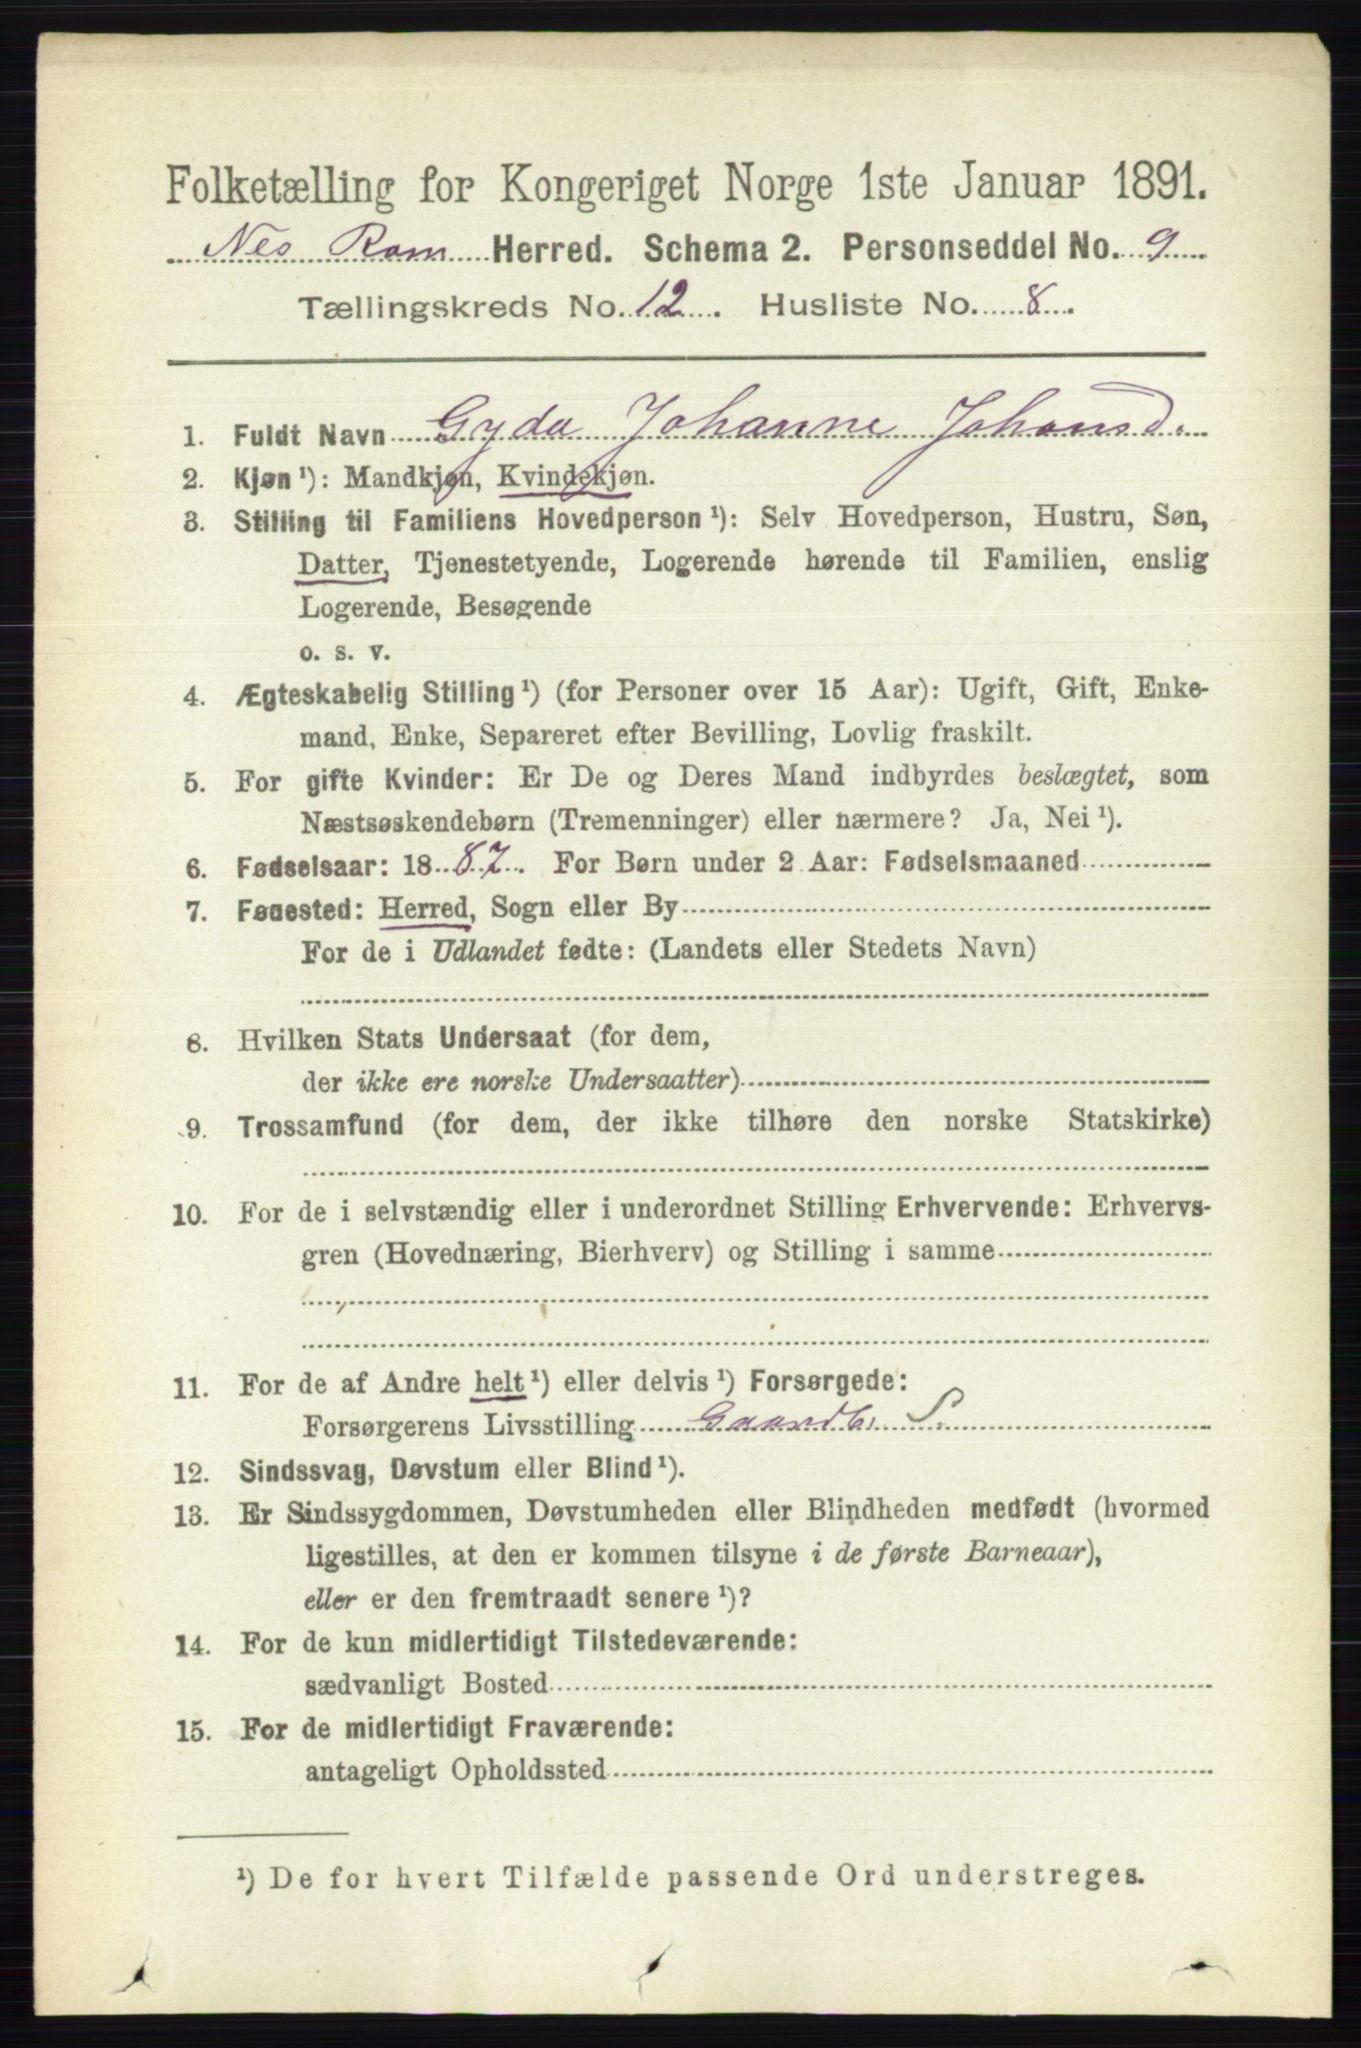 Folketælling for Kongeriget Norge 1ste Januar 1891.
Nes Rom Herred. Schema 2. Personseddel No. 9
Tællingskreds No. 12. Husliste No. 8.
1. Fuldt Navn Gyda Johanne Johansd.
2. Kjøn¹): Mandkjøn, Kvindekjøn.
3. Stilling til Familiens Hovedperson¹): Selv Hovedperson, Hustru, Søn,
Datter, Tjenestetyende, Logerende hørende til Familien, enslig
Logerende, Besøgende
o. s. v.
4. Ægteskabelig Stilling¹) (for Personer over 15 Aar): Ugift, Gift, Enke-
mand, Enke, Separeret efter Bevilling, Lovlig fraskilt.
5. For gifte Kvinder: Er De og Deres Mand indbyrdes beslægtet, som
Næstsøskendebørn (Tremenninger) eller nærmere? Ja, Nei¹).
6. Fødselsaar: 1887. For Børn under 2 Aar: Fødselsmaaned
7. Fødested: Herred, Sogn eller By
For de i Udlandet fødte: (Landets eller Stedets Navn)
8. Hvilken Stats Undersaat (for dem,
der ikke ere norske Undersaatter)
9. Trossamfund (for dem, der ikke tilhøre den norske Statskirke)
10. For de i selvstændig eller i underordnet Stilling Erhvervende: Erhvervs-
gren (Hovednæring, Bierhverv) og Stilling i samme
11. For de af Andre helt¹) eller delvis¹) Forsørgede:
Forsørgerens Livsstilling Gaardbr S.
12. Sindssvag, Døvstum eller Blind¹).
13. Er Sindssygdommen, Døvstumheden eller Blindheden medfødt (hvormed
ligestilles, at den er kommen tilsyne i de første Barneaar),
eller er den fremtraadt senere¹)?
14. For de kun midlertidigt Tilstedeværende:
sædvanligt Bosted
15. For de midlertidigt Fraværende:
antageligt Opholdssted
¹) De for hvert Tilfælde passende Ord understreges.